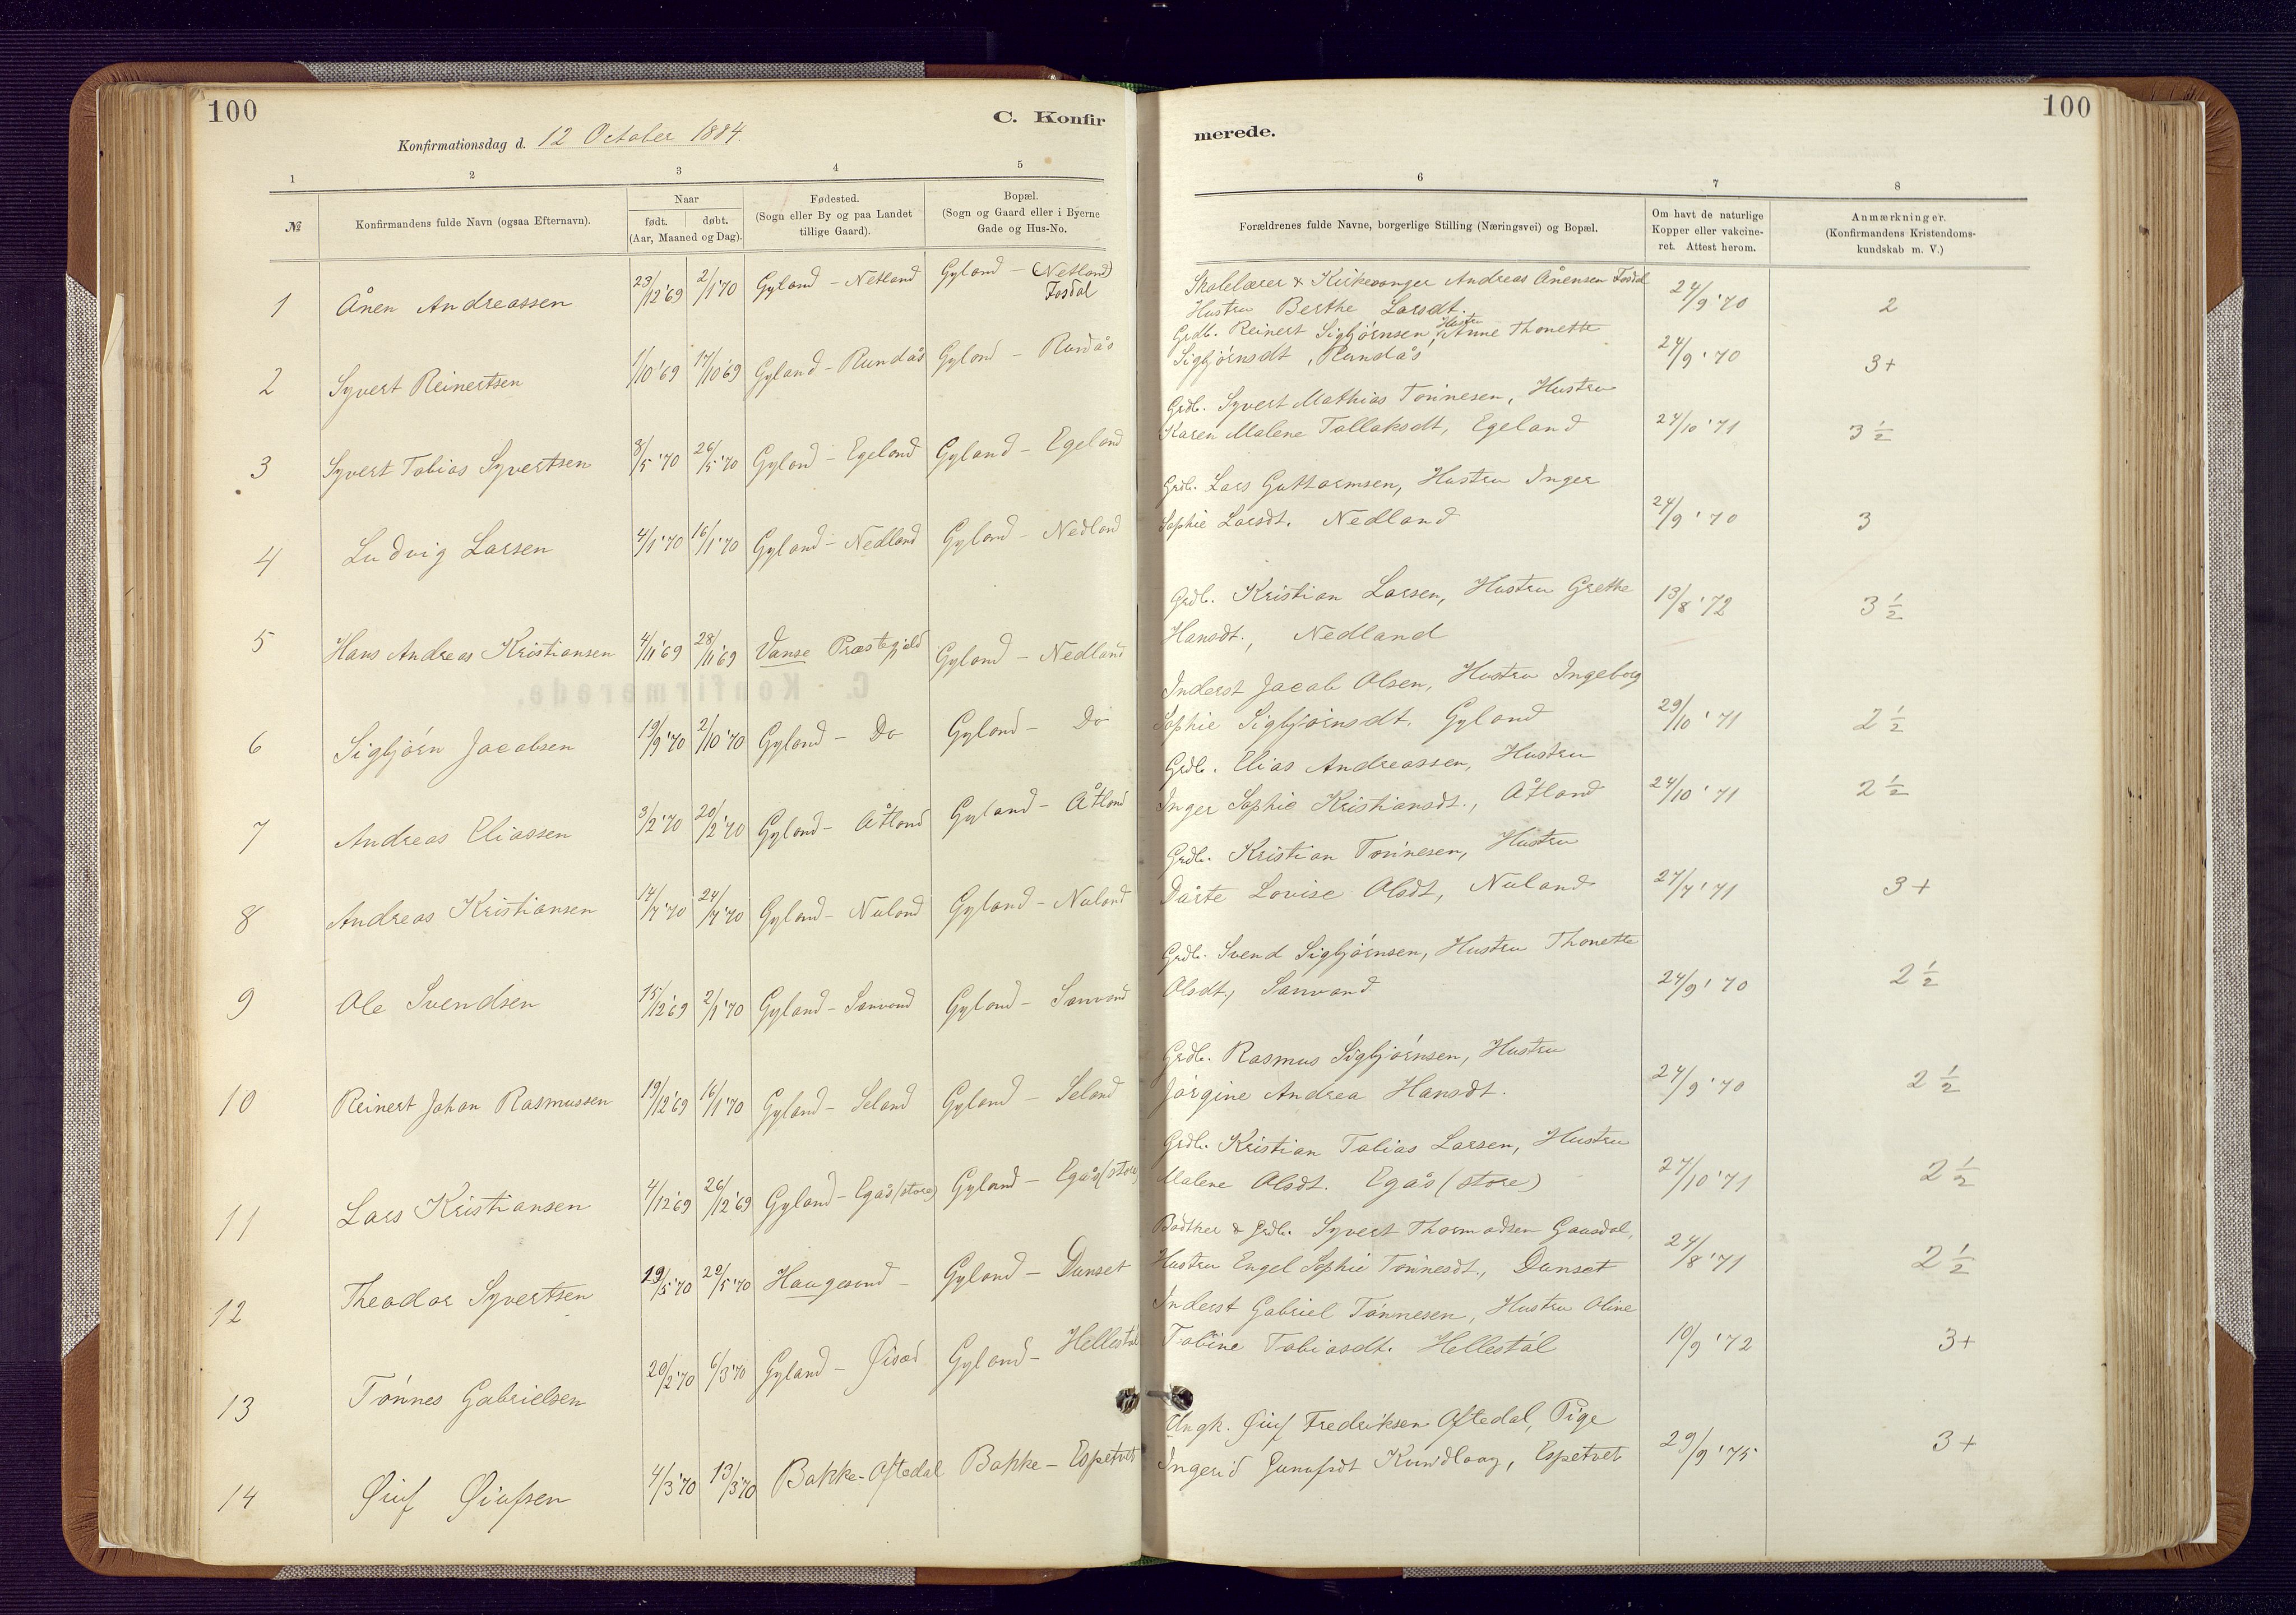 100
C. Konfir
Konfirmationsdag d. 12 October 1884.
1 2 3 4 5
№ Konfirmandens fulde Navn (ogsaa Efternavn). Naar født. døbt. (Aar, Maaned og Dag). Fødested. (Sogn eller By og paa Landet tillige Gaard). Bopæl. (Sogn og Gaard eller i Byerne Gade og Hus-No.
1 Ånen Andreassen 23/12'69 2/1'70 Gyland - Netland Gyland - (Netland) Fosdal
2 Syvert Reinertsen 1/10'69 17/10'69 Gyland - Rundås Gyland - Rundås
3 Syvert Tobias Syvertsen 8/5'70 26/5'70 Gyland - Egeland Gyland - Egeland
4 Ludvig Larsen 4/1'70 16/1'70 Gyland - Nedland Gyland - Nedland
5 Hans Andreas Kristiansen 4/11'69 28/11'69 Vanse Præstegjeld Gyland - Nedland
6 Sigbjörn Jacobsen 19/9'70 2/10'70 Gyland - Do Gyland - Do
7 Andreas Eliassen 3/2'70 20/2'70 Gyland - Åtland Gyland - Åtland
8 Andreas Kristiansen 14/7'70 24/7'70 Gyland - Nuland Gyland - Nuland
9 Ole Svendsen 15/12'69 2/1'70 Gyland - Sanvand Gyland - Sanvand
10 Reinert Johan Rasmussen 19/12'69 16/1'70 Gyland - Seland Gyland - Seland
11 Lars Kristiansen 4/12'69 26/12'69 Gyland - Egås (store) Gyland - Egås (store)
12 Theodor Syvertsen 19/5'70 22/5'70 Haugesund - Gyland - Dunset
13 Tönnes Gabrielsen 20/2'70 6/3'70 Gyland - Øisæd Gyland - Hellestöl
14 Øiuf Øiufsen 4/3'70 13/3'70 Bakke - Oftedal Bakke - Espetvet
100
merede.
6 7 8
Forældrenes fulde Navne, borgerlige Stilling (Næringsvei) og Bopæl. Om havt de naturlige Kopper eller vakcineret. Attest herom. Anmærkninger. (Konfirmandens Kristendomskundskab m. V.)
Skolelærer & Kirkesanger Andreas Ånensen Fosdal
Hustru Berthe Larsdt. 24/9'70 2
Grdb. Reinert Sigbjörnsen, Hustru Anne Thonette
Sigbjörnsdt, Rundås 24/9'70 3+
Grdb. Syvert Mathias Tönnesen, Hustru
Karen Malene Tallaksdt, Egeland 24/10'71 3 1/2
Grdb. Lars Guttormsen, Hustru Inger
Sophie Larsdt. Nedland 24/9'70 3
Grdb. Kristian Larsen, Hustru Grethe
Hansdt., Nedland 13/8'72 3 1/2
Inderst Jacob Olsen, Hustru Ingeborg
Sophie Sigbjörnsdt. Gyland 29/10'71 2 1/2
Grdb. Elias Andreassen, Hustru
Inger Sophie Kristiansdt., Åtland 24/10'71 2 1/2
Grdb. Kristian Tönnesen, Hustru
Dårte Lovise Olsdt, Nuland 27/7'71 3+
Grdb. Svend Sigbjörnsen, Hustru Thonette
Olsdt., Sanvand 24/9'70 2 1/2
Grdb. Rasmus Sigbjörnsen, Hustru
Jörgine Andrea Hansdt. 24/9'70 2 1/2
Grdb. Kristian Tobias Larsen, Hustru
Malene Olsdt. Egås (store) 27/10'71 2 1/2
Bödtker & Grdb. Syvert Thormodsen Gausdal,
Hustru Engel Sophie Tönnesdt., Dunset 24/8'71 2 1/2
Inderst Gabriel Tönnesen, Hustru Oline
Tobine Tobiasdt. Hellestöl 10/9'72 3+
Ungk. Øiuf Fredriksen Oftedal, Pige
Ingerid Espetvet 29/9'75 3+